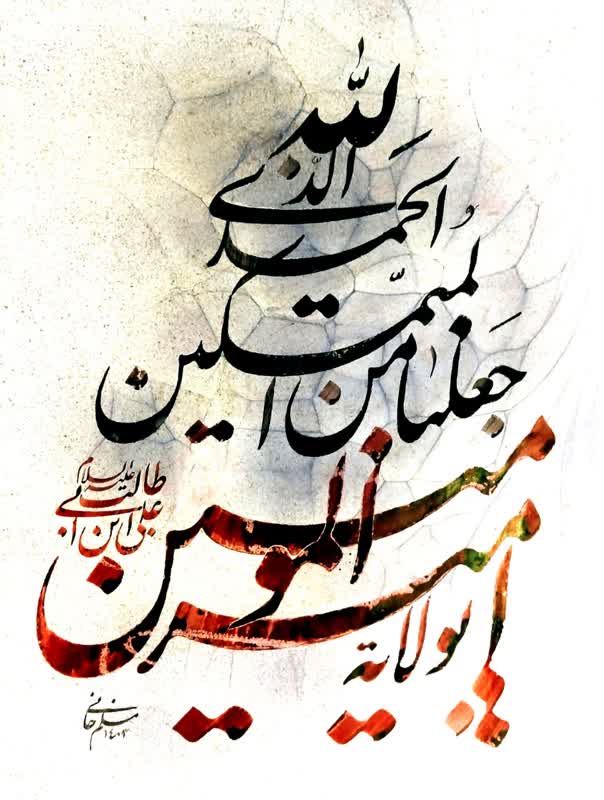 الحمد لله الذی
جعلنا من المتمسکین
بولایة امیرالمؤمنین
علی ابن ابی طالب علیه السلام